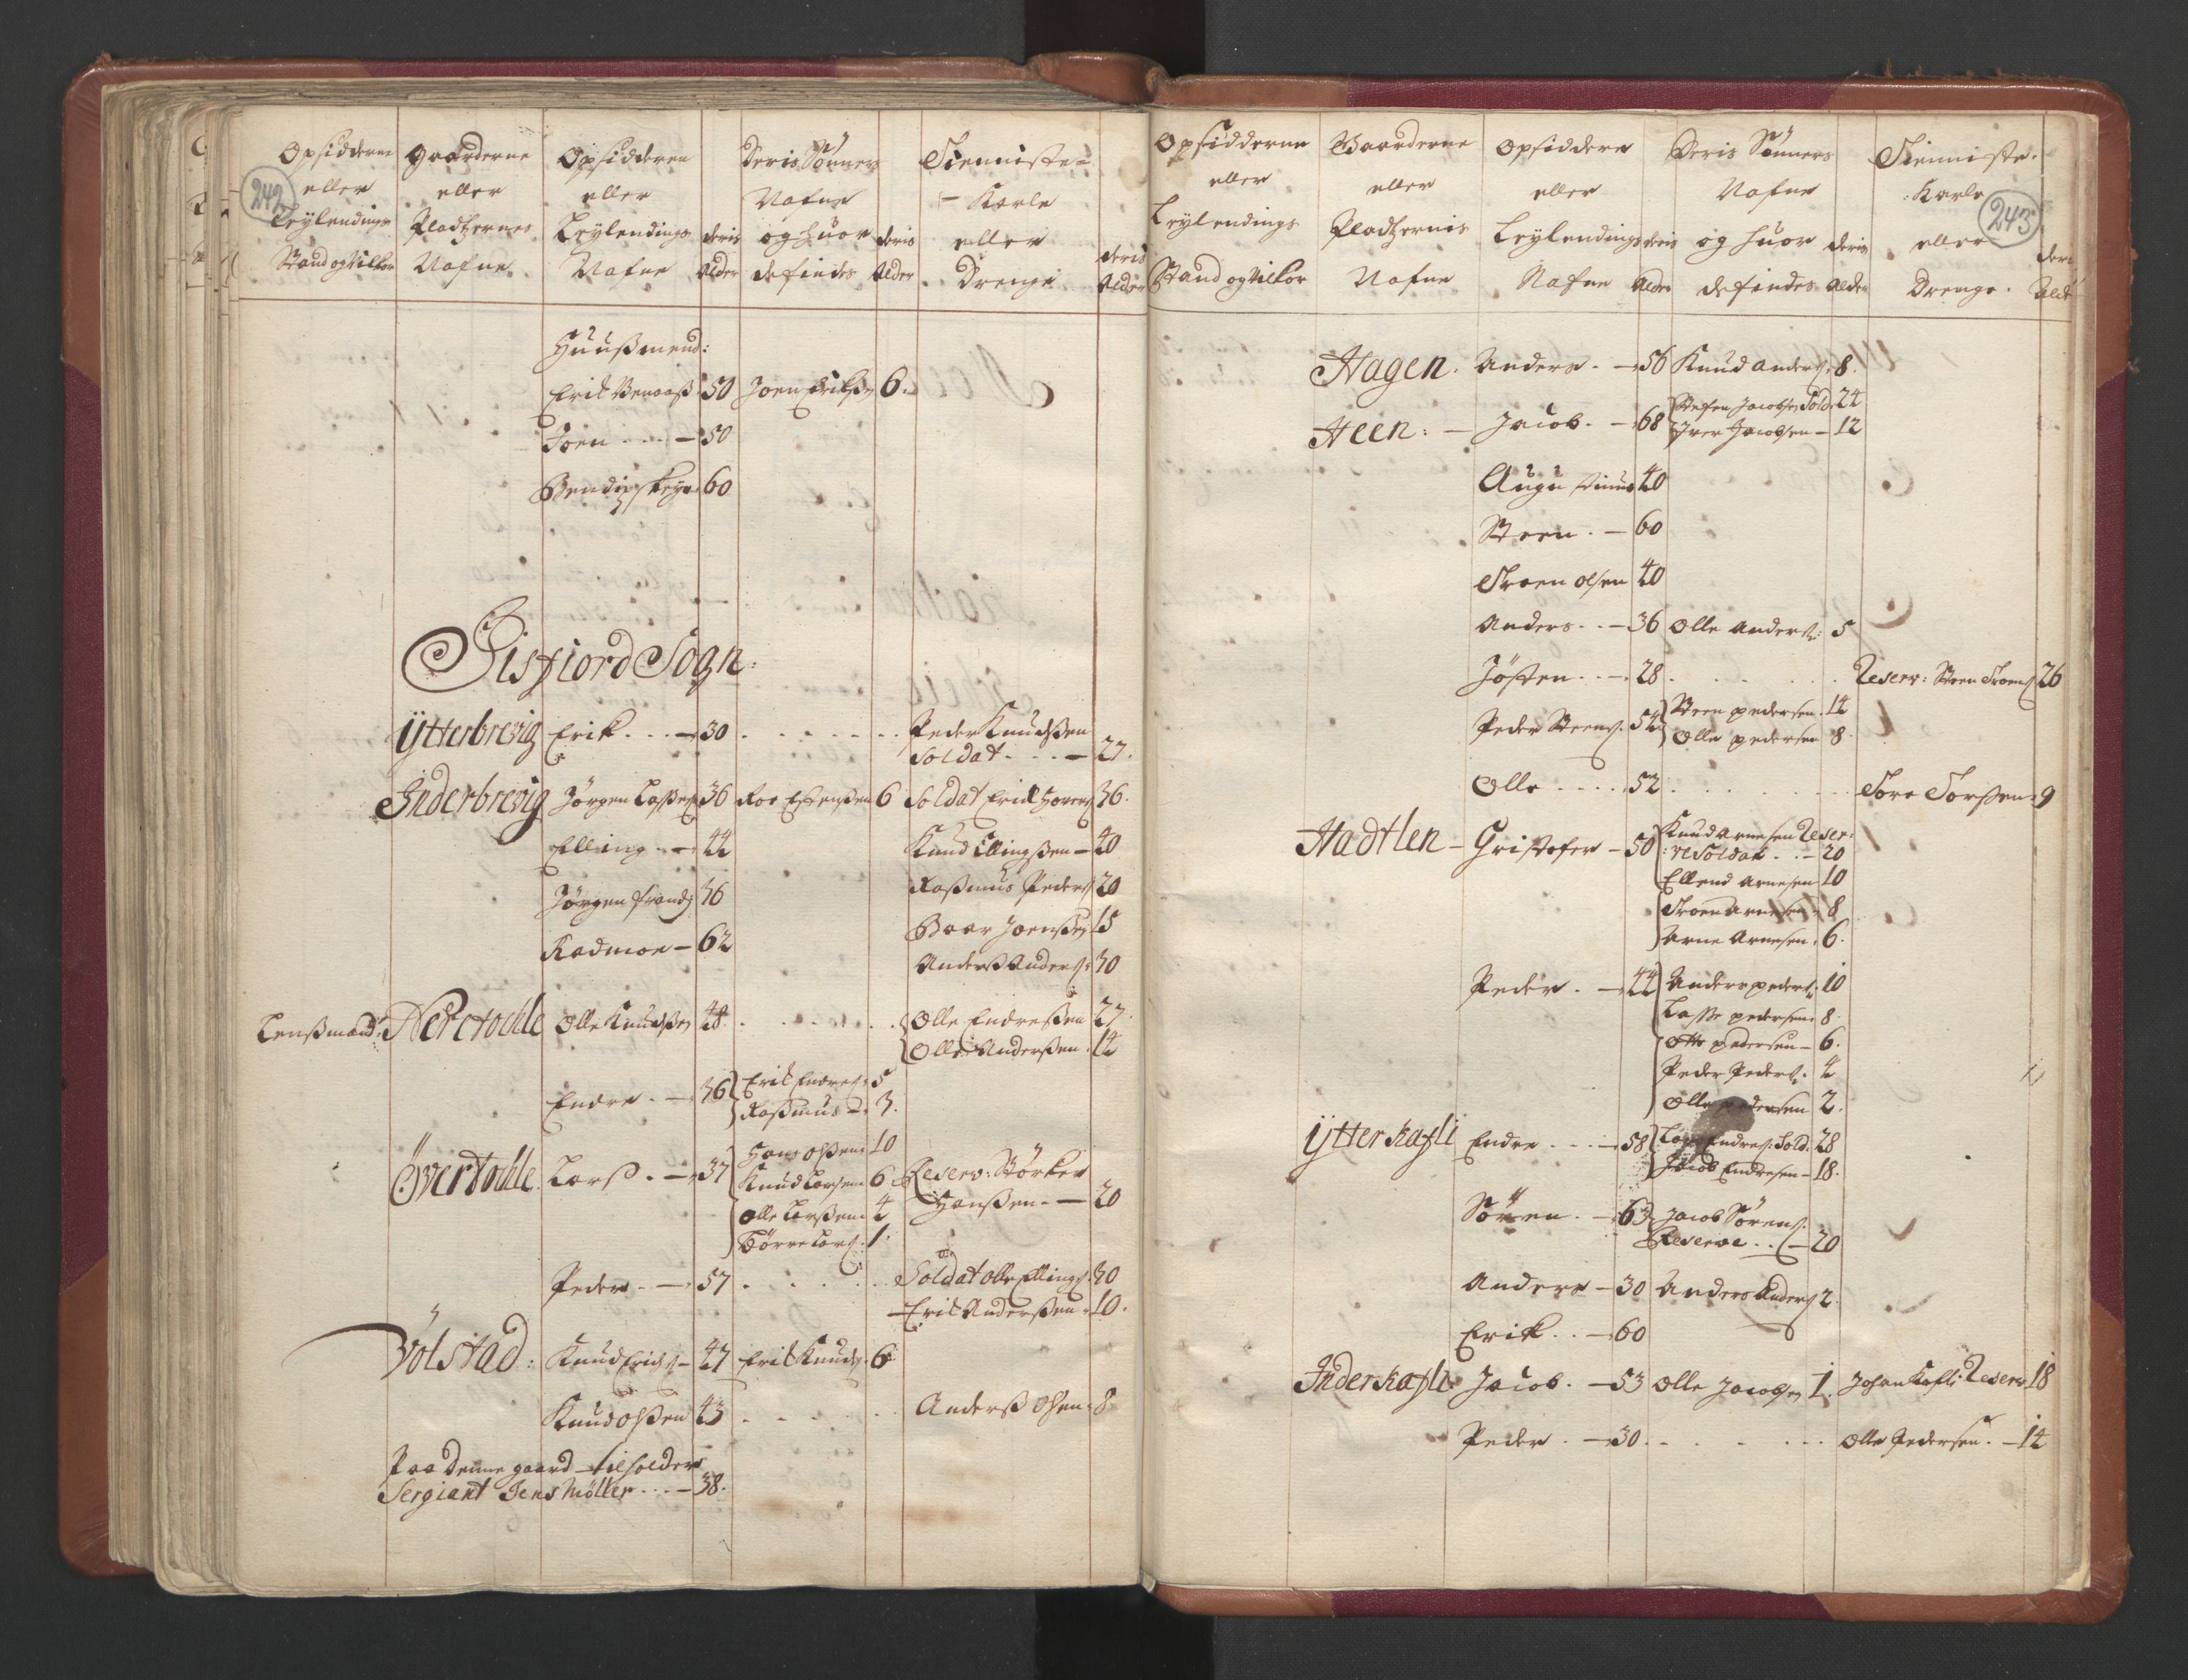 242
Opsidderne eller Leylendings Stand og Vilkor
Gaarderne eller Pladtzernes Nafne
Opsidderen eller Leylendings Nafne
deris Alder
Deris Sønners Nafne og huor de findes
deris Alder
Tienniste-Karle eller Drenge
deris Alder
Huußmend:
Erik 50 Joen Erikßen 6
Joen 50
60
Gisfiord Sogn:
Ytterbrevig Erik 30 Peder Knudßen
Soldat 27
Inderbrevig Jørgen Laßes 36 Roe 6 Soldat Erick 36
Elling 44 Knud Ellingßen 40
Jørgen 36 Raßmus Peders 20
Radmoe 62 Baar Joenßen 15
Anderß Anders 30
Lenßmand Neretoelle Olle Knudßen 48 Olle Endreßen 27
Olle Anderßen 14
Endre 36 Erik Endres 5
Raßmus 3
Øvertoelle Larß 37 Hans Olßen 10
Knud Larsen 6 Reserv: Størker
Olle Larßen 4 Hanßen 20
Børre Lars 1
Peder 57 Soldat Olle Ellings 30
Erik Anderßen 10
Volstad: Knud Erichs 47 Erik Knuds 6
Knud Olßen 43 Anderß Olsen 8
Paa denne gaard tilholder
Sergiant Jens Møller 38
243
Opsidderne eller Leylendings Stand og Vilkor
Gaarderne eller Pladtzernis Nafne
Opsiddere eller Leylendings Nafne
deris Alder
Deris Sønners Nafne og huor de findes
deris Alder
Tienniste Karle eller Drenge
deris Alder
Hagen Anders 56 Knud Anders 8
Heen: Jacob 68 Stefen Jacobsen Sold 24
Iver Jacobsen 12
Augustinus 40
Steen 60
Troen Olsen 40
Anders 36 Olle Anders 5
Jøsten 28 Reserv: Steen Troens 26
Peder Steens 54 Steen Pedersen 14
Olle Pedersen 8
Olle 52 Tore Torßen 9
Hadtlen Gristofer 50 Knud Arnesen Reser:
ve Soldat 20
Ellend Arnesen 10
Troen Arnesen 8
Arne Arnesen 6
Peder 44 Anders Peders 10
Lasse Pedersen 8
Otto Pedersen 6
Peder Peders 4
Olle Pedersen 2
Ytterkafli Endre 58 Endres Sold: 28
Jacob Endresen 18
Søren 63 Jacob Sørens
Reserve 20
Anders 30 Anders Anders 2
Erik 60
Inderkafli Jacob 53 Olle Jacobsen 1 Johan Kafli Reserv 18
Peder 30 Olle Pedersen 14